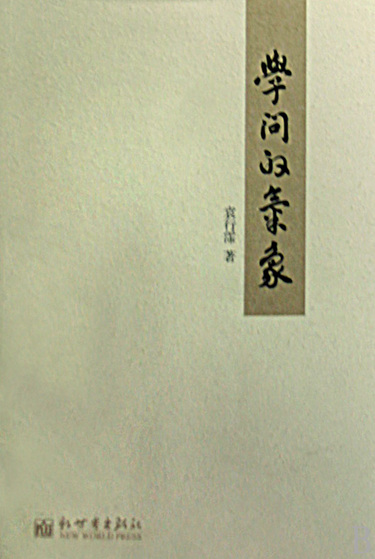 學问的氣象
袁行霈 著
新世界出版社
NEW WORLD PRESS